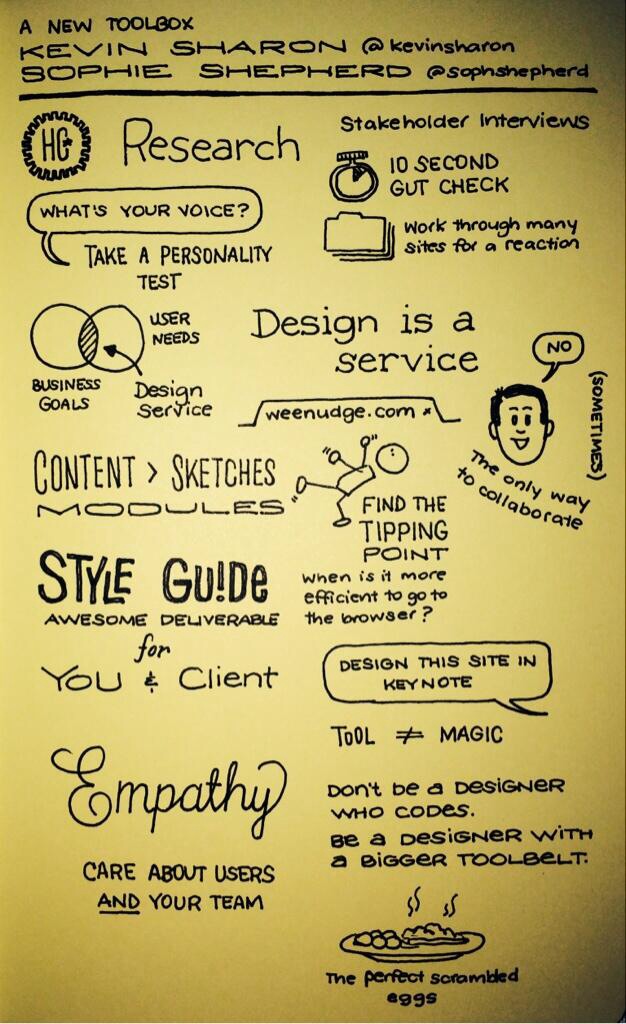 A NEW TOOLBOX
KEVIN SHARON @kevinsharon
SOPHIE SHEPHERD @sophshepherd
HC
Research
Stakeholder Interviews
10 SECOND
GUT CHECK
WHAT'S YOUR VOICE?
TAKE A PERSONALITY
TEST
Work through many
sites for a reaction
USER
NEEDS
BUSINESS
GOALS
Design
Service
Design is a
service
weenudge.com x
NO
(SOMETIMES)
The only way
to collaborate
CONTENT > SKETCHES
MODULES
FIND THE
TIPPING
POINT
when is it more
efficient to go to
the browser?
STYLE GUIDE
AWESOME DELIVERABLE
for
YOU & Client
DESIGN THIS SITE IN
KEYNOTE
TOOL ≠ MAGIC
Empathy
CARE ABOUT USERS
AND YOUR TEAM
Don't be a DESIGNER
WHO CODES.
Be a DESIGNER WITH
a BIGGER TOOLBELT.
The perfect scrambled
eggs